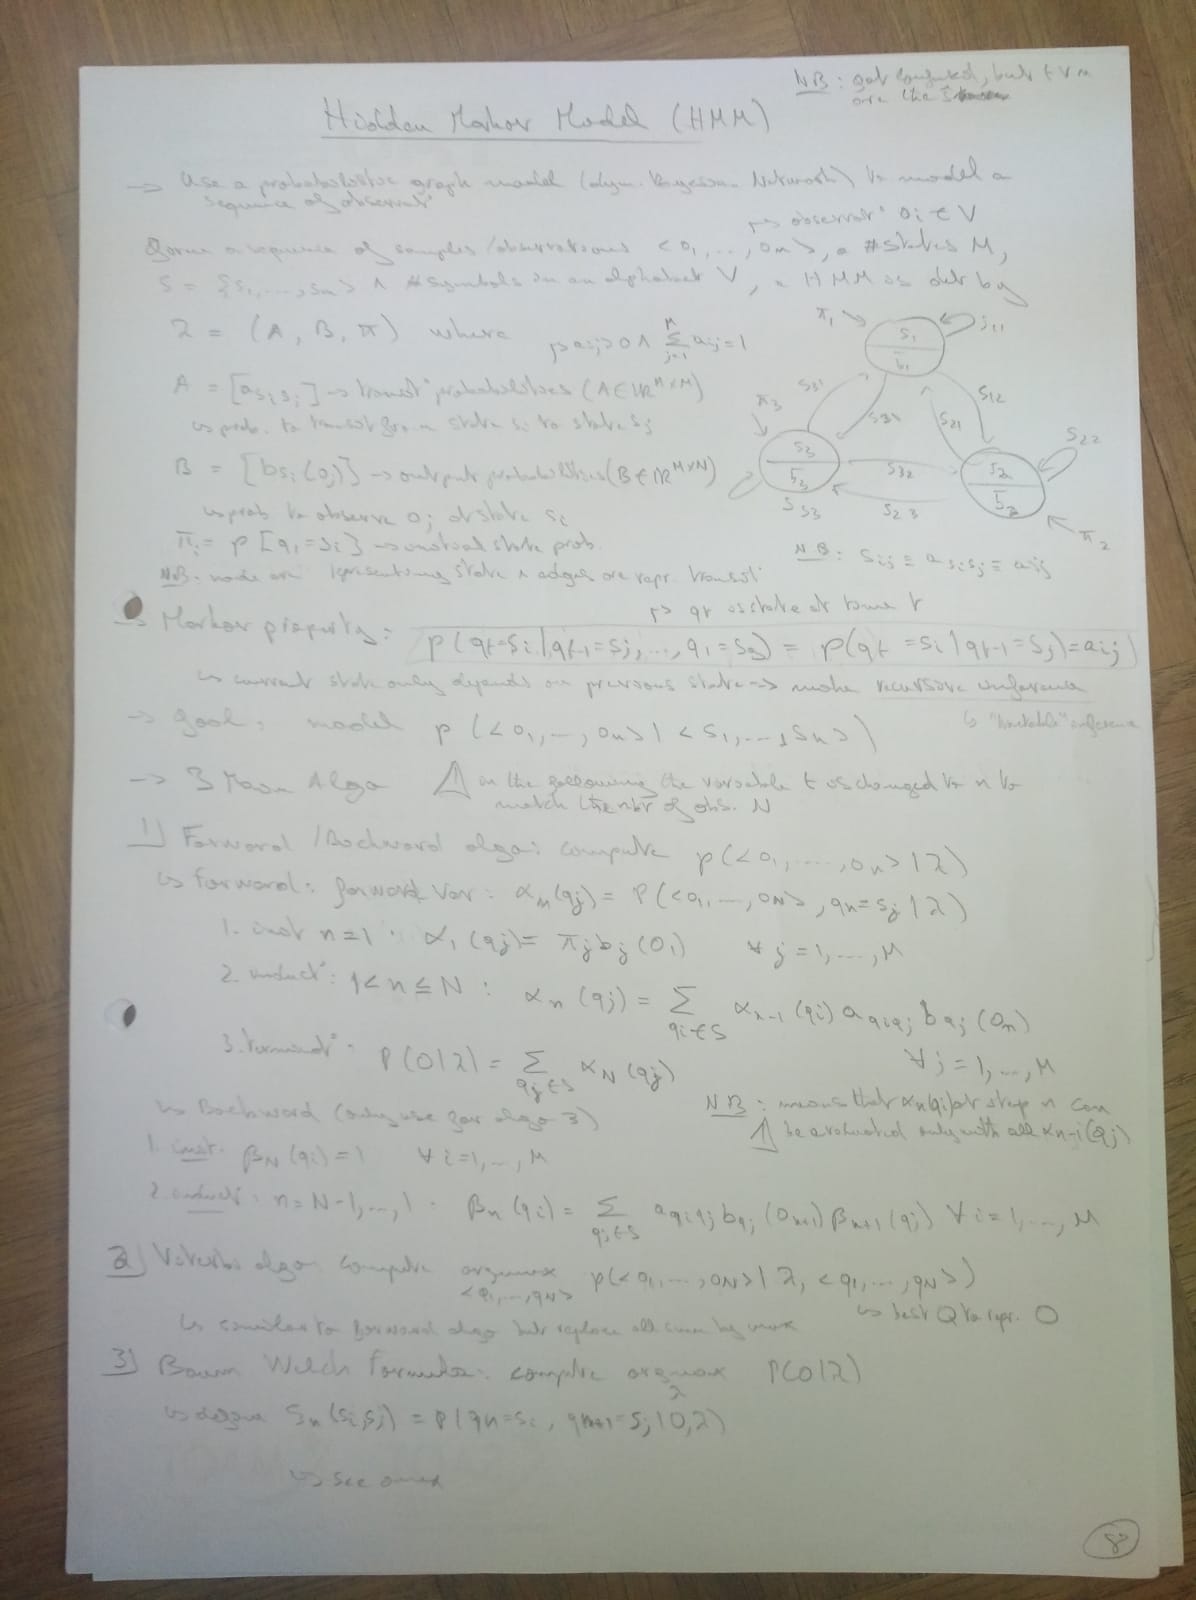 NB: got confused, but t ∨ n
are the
Hidden Markov Model (HMM)
→ Use a probabilistic graph model (dyn. Bayesian Network) to model a
sequence of observat°
↱ observat° oi ∈ V
Given a sequence of samples/observations <o1,...,on>, a #states M,
S = {s1,...,sn> ∧ #symbols in an alphabet V, a HMM is def by
λ = (A, B, π) where
↱ aij>0 ∧ Σ_{j=1}^{M} aij=1
A = [a_{si sj}] → transit° probabilities (A∈ℝ^{M×M})
↳ prob. to transit from state si to state sj
B = [b_{si}(oj)] → output probabilities (B∈ℝ^{M×N})
↳ prob to observe oj at state si
πi = p[q1=si] → initial state prob.
NB: node are representing state ∧ edges are repr. transit°
π1
s1
b1
S11
S31
S31
S12
S21
π3
s3
b3
S33
S32
S23
s2
b2
S22
π2
NB: Sij ≡ a_{si sj} ≡ aij
↱ qt is state at time t
→ Markov property: p(qt=si|qt-1=sj,...,q1=s3) = p(qt=si|qt-1=sj)=aij
↳ current state only depends on previous state → make recursive inference
↳ "tractable" inference
→ Goal: model p(<o1,...,on>|<s1,...,sn>)
→ 3 Main Algo ⚠ in the following the variable t is changed to n to
match the nbr of obs. N
1) Forward/Backward algo: compute p(<o1,...,on>|λ)
↳ Forward: forward Var: αn(qj)= P(<o1,...,oN>, qn=sj|λ)
1. init n=1: α1(qj)= πj bj(o1) ∀ j=1,...,M
2. induct°: 1<n≤N: αn(qj) = Σ_{qi∈S} αn-1(qi) a_{qi qj} b_{qj}(on)
∀ j=1,...,M
3. terminat°: P(O|λ) = Σ_{qj∈S} αN(qj)
NB: means that αn(qi) at step n can
⚠ be evaluated only with all αn-1(qj)
↳ Backward (only use for algo 3)
1. init. βN(qi)=1 ∀ i=1,...,M
2. induct°: n=N-1,...,1: βn(qi) = Σ_{qj∈S} a_{qi qj} b_{qj}(on+1) βn+1(qj) ∀ i=1,...,M
2) Viterbi algo: compute argmax_{<q1,...,qN>} p(<o1,...,oN>|λ, <q1,...,qN>)
↳ best Q to repr. O
↳ similar to forward algo but replace all sum by max
3) Baum Welch Formula: compute argmax_λ P(O|λ)
↳ define ξn(si,sj) = P(qn=si, qn+1=sj|O,λ)
↳ see annex
8